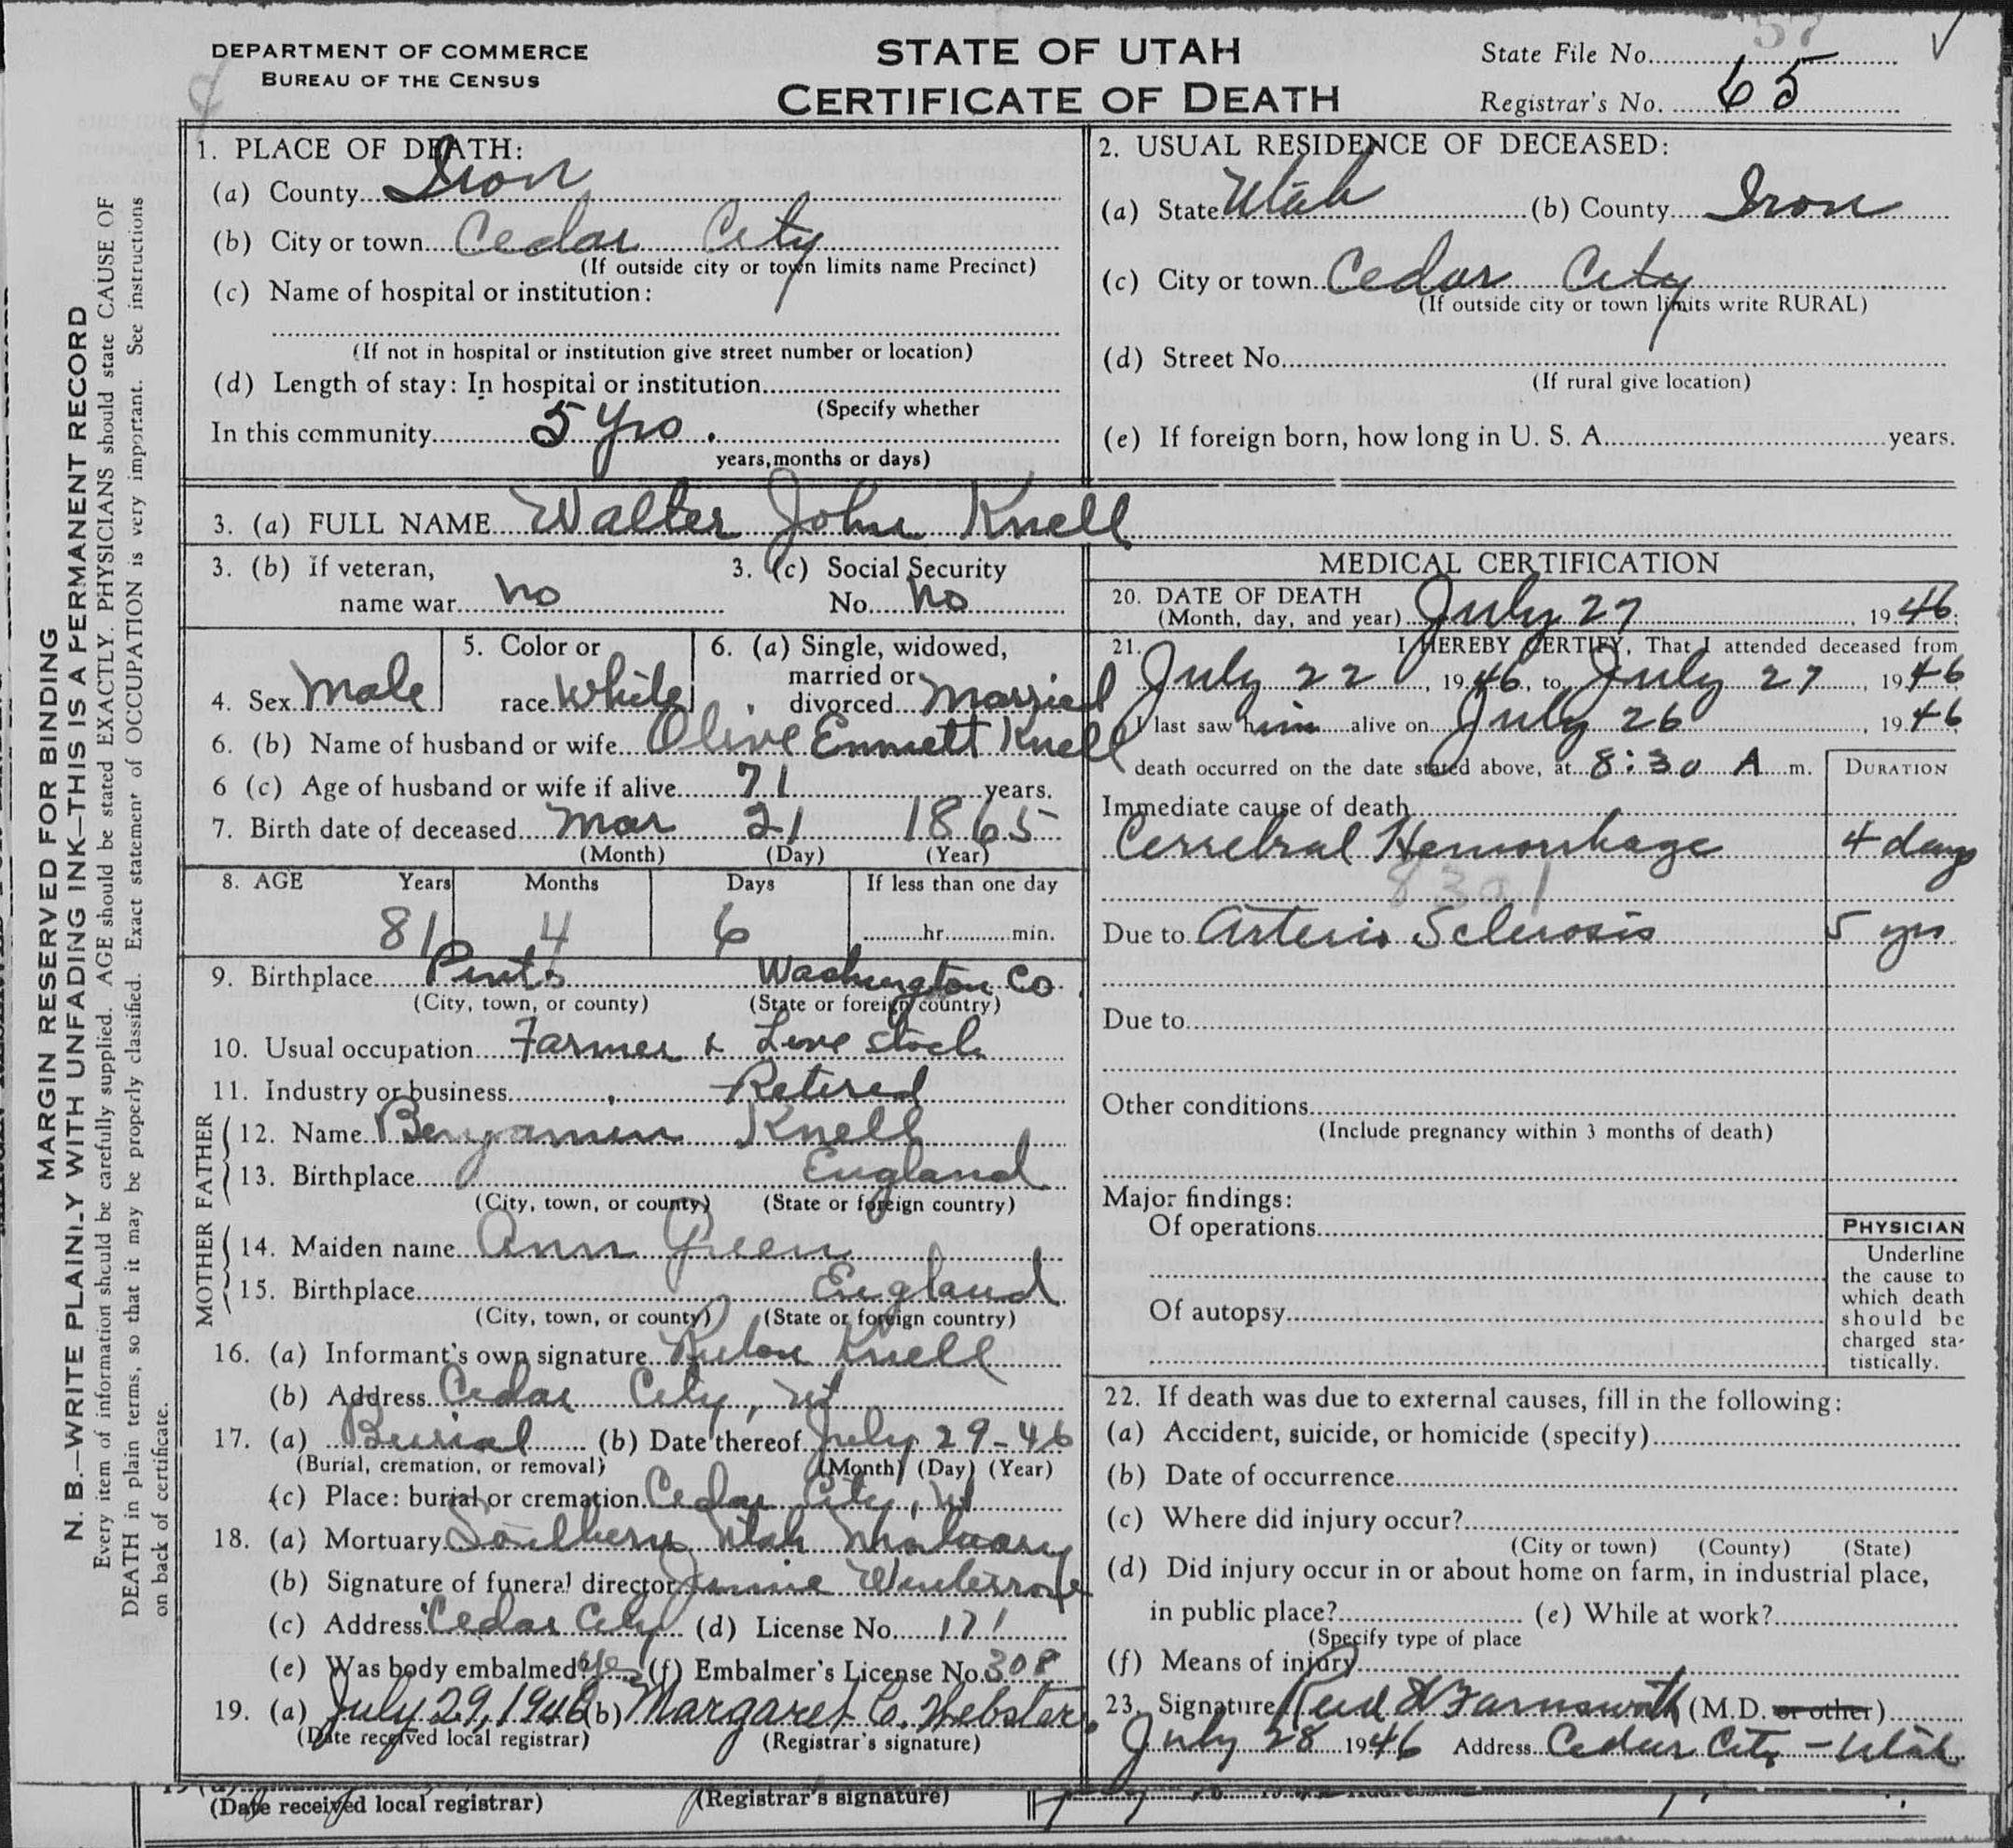 DEPARTMENT OF COMMERCE
BUREAU OF THE CENSUS
STATE OF UTAH
CERTIFICATE OF DEATH
57
State File No.
Registrar's No. 65
1. PLACE OF DEATH:
(a) County Iron
(b) City or town Cedar City
(If outside city or town limits name Precinct)
(c) Name of hospital or institution:
(If not in hospital or institution give street number or location)
(d) Length of stay: In hospital or institution
(Specify whether
In this community 5 yrs.
years, months or days)
2. USUAL RESIDENCE OF DECEASED:
(a) State Utah (b) County Iron
(c) City or town Cedar City
(If outside city or town limits write RURAL)
(d) Street No.
(If rural give location)
(e) If foreign born, how long in U. S. A. years.
3. (a) FULL NAME Walter John Knell
3. (b) If veteran,
name war no
3. (c) Social Security
No. No
4. Sex male
5. Color or
race white
6. (a) Single, widowed,
married or
divorced Married
6. (b) Name of husband or wife Olive Emmett Knell
6 (c) Age of husband or wife if alive 71 years.
7. Birth date of deceased Mar 21 1865
(Month) (Day) (Year)
8. AGE Years Months Days If less than one day
81 4 6 hr. min.
9. Birthplace Pinto Washington Co
(City, town, or county) (State or foreign country)
10. Usual occupation Farmer & Live stock
11. Industry or business Retired
FATHER
12. Name Benjamin Knell
13. Birthplace England
(City, town, or county) (State or foreign country)
MOTHER
14. Maiden name Ann Green
15. Birthplace England
(City, town, or county) (State or foreign country)
16. (a) Informant's own signature Rulon Knell
(b) Address Cedar City, Ut
17. (a) Burial (b) Date thereof July 29-46
(Burial, cremation, or removal) (Month) (Day) (Year)
(c) Place: burial or cremation Cedar City, Ut
18. (a) Mortuary Southern Utah Mortuary
(b) Signature of funeral director
(c) Address Cedar City (d) License No. 171
(e) Was body embalmed? yes (f) Embalmer's License No. 308
19. (a) July 29, 1946 (b) Margaret C. Webster
(Date received local registrar) (Registrar's signature)
MEDICAL CERTIFICATION
20. DATE OF DEATH
(Month, day, and year) July 27, 1946.
21. I HEREBY CERTIFY, That I attended deceased from
July 22, 1946, to July 27, 1946
I last saw him alive on July 26, 1946
death occurred on the date stated above, at 8:30 A m.
DURATION
Immediate cause of death
Cerrebral Hemorrhage 4 days
8301
Due to Arterio Sclerosis 5 yrs
Due to
Other conditions
(Include pregnancy within 3 months of death)
Major findings:
Of operations
Of autopsy
PHYSICIAN
Underline
the cause to
which death
should be
charged sta-
tistically.
22. If death was due to external causes, fill in the following:
(a) Accident, suicide, or homicide (specify)
(b) Date of occurrence
(c) Where did injury occur?
(City or town) (County) (State)
(d) Did injury occur in or about home on farm, in industrial place,
in public place? (e) While at work?
(Specify type of place
(f) Means of injury
23. Signature Farnsworth (M.D. or other)
July 28 1946 Address Cedar City - Utah
(Date received local registrar) (Registrar's signature)
MARGIN RESERVED FOR BINDING
N. B.—WRITE PLAINLY WITH UNFADING INK—THIS IS A PERMANENT RECORD
Every item of information should be carefully supplied. AGE should be stated EXACTLY. PHYSICIANS should state CAUSE OF
DEATH in plain terms, so that it may be properly classified. Exact statement of OCCUPATION is very important. See instructions
on back of certificate.